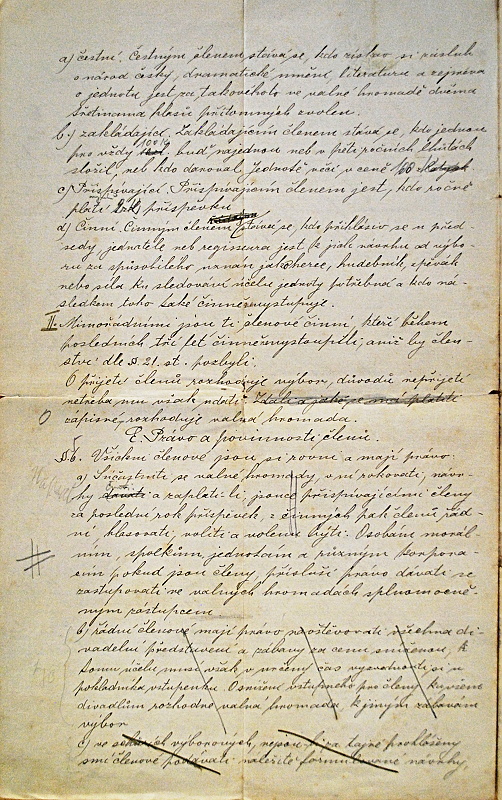 a) čestní. Čestným členem stává se, kdo získav si zásluh
o národ český, dramatické umění, literaturu a zejména
o jednotu jest za takového to ve valné hromadě dvěma
třetinama hlasů přítomných zvolen.
b) zakládající. Zakládajícím členem stává se, kdo jednou
pro vždy buď najednou neb v pěti ročních lhůtách
složil, neb kdo daroval Jednotě věci v ceně 100
c) Přispívající. Přispívajícím členem jest, kdo ročně
platí příspěvku
d) Činní. Činným členem stává se, kdo přihlásiv se u před-
sedy, jednatele neb regisseura jest k jich návrhu od výbo-
ru za způsobilého uznán jako herec, hudebník, zpěvák
nebo síla ku sledování účelu jednoty potřebná a kdo ná-
sledkem toho také činně vystupuje.
II. Mimořádnými jsou ti členové činní, kteří během
posledních tří let činně vystoupili, aniž by člen-
ství dle §. 21. st. pozbyli.
O přijetí členů rozhoduje výbor, důvodů nepřijetí
netřeba mu však udati.
zápisné, rozhoduje valná hromada.
E. Právo a povinnosti členů.
§ 6. Všichni členové jsou si rovni a mají právo:
a) Súčastniti se valné hromady, v ní rokovati, návr-
hy dávati a zaplatí-li, jsouce přispívajícími členy
za poslední rok příspěvek, z činných pak členů řád-
ní, hlasovati, voliti a voleni býti. Osobám morál-
ním, spolkům, jednotám a různým korpora-
cím pokud jsou členy, přísluší právo dávati se
zastupovati ve valných hromadách splnomocně-
ným zástupcem
b) řádní členové mají právo navštěvovati všechna di-
vadelní představení a zábavy za cenu sníženou, k
tomu účelu musí však v určený čas vyzvednouti si u
pokladníka vstupenku. O snížení vstupného pro členy ku
divadlům rozhodne valná hromada, k jiným zábavám
výbor
c) ve výborových, nejsou-li za tajné prohlášeny
smí členové podávati náležitě formulované návrhy,